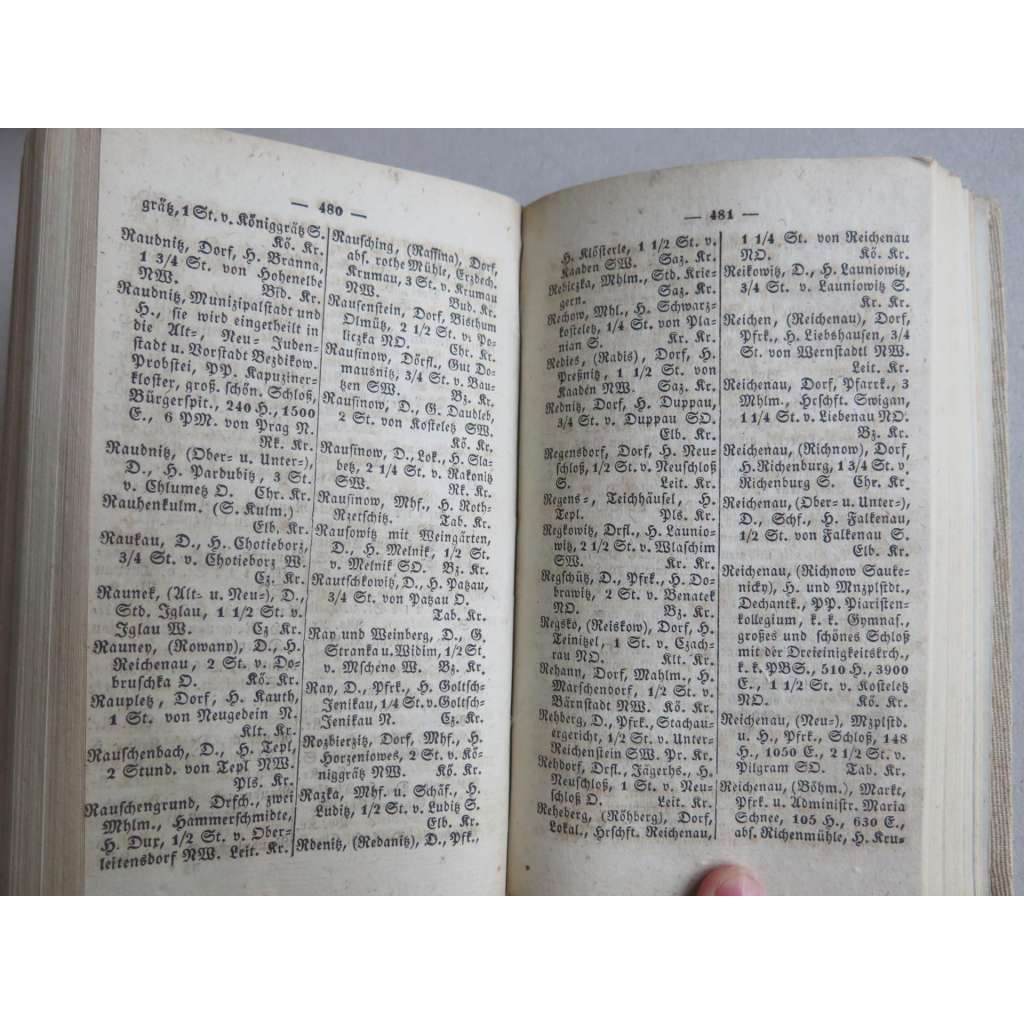 — 480 —
grätz, 1 St. v. Königgrätz S.
Kö. Kr.
Raudnitz, Dorf, H. Branna,
1 3/4 St. von Hohenelbe
NW. Bid. Kr.
Raudnitz, Munizipalstadt und
H., sie wird eingerheilt in
die Alt-, Neu- Juden-
stadt u. Vorstadt Bezdikow.
Probstei, PP. Kapuziner-
kloster, groß. schön. Schloß,
Bürgerspit., 240 H., 1500
E., 6 PM. von Prag N.
Rk. Kr.
Raudnitz, (Ober- u. Unter-),
D., H. Pardubitz, 3 St.
v. Chlumetz O. Chr. Kr.
Rauhenkulm. (S. Kulm.)
Elb. Kr.
Raukau, D., H. Chotieborz,
3/4 St. v. Chotieborz W.
Cz. Kr.
Raunek, (Alt- u. Neu-), D.,
Std. Iglau, 1 1/2 St. v.
Iglau W. Cz Kr.
Rauney, (Rowany), D., H.
Reichenau, 2 St. v. Do-
bruschka O. Kö. Kr.
Raupletz, Dorf, H. Kauth,
1 St. von Neugedein N.
Klt. Kr.
Rauschenbach, D., H. Tepl,
2 Stund. von Tepl NW.
Pls. Kr.
Rauschengrund, Drfch., zwei
Mhlm., Hammerschmidte,
H. Dux, 1/2 St. v. Ober-
leitensdorf NW. Leit. Kr.
Rausching, (Raffina), Dorf,
abs. rothe Mühle, Erzdech.
Krumau, 3 St. v. Krumau
NW. Bud. Kr.
Rausenstein, Dorf, Bisthum
Olmütz, 2 1/2 St. v. Po-
liczka NO. Chr. Kr.
Rausinow, Dörfl., Gut Do-
mausnitz, 3/4 St. v. Bau-
tzen SW. Bz. Kr.
Rausinow, D., G. Daudleb,
2 St. v. Kosteletz SW.
Kö. Kr.
Rausinow, D., Lok., H. Sla-
betz, 2 1/4 St. v. Rakonitz
SW. Rk. Kr.
Rausinow, Mhf., H. Roth-
Rzetschitz. Tab. Kr.
Rausowitz mit Weingärten,
D., H. Melnik, 1/2 St.
v. Melnik SO. Bz. Kr.
Rautschkowitz, D., H. Patzau,
3/4 St. von Patzau O.
Tab. Kr.
Ray und Weinberg, D., G.
Stranka u. Widim, 1/2 St.
v. Mscheno W. Bz. Kr.
Ray, D., Pfrk., H. Goltsch-
Jenikau, 1/4 St. v. Goltsch-
Jenikau N. Cz. Kr.
Razbierzitz, Dorf, Mhf., H.
Horzeniowes, 2 St. v. Kö-
niggrätz NW. Kö. Kr.
Razka, Mhf. u. Schäf., H.
Luditz, 1/2 St. v. Luditz S.
Elb. Kr.
Rdenitz, (Redanitz), D., Pfk.,
— 481 —
H. Klösterle, 1 1/2 St. v.
Kaaden SW. Saz. Kr.
Rediczka, Mhlm., Std. Krie-
gern. Saz. Kr.
Rechow, Mhl., H. Schwarz-
kosteletz, 1/4 St. von Pla-
nian S. Kr. Kr.
Redies, (Radis), Dorf, H.
Preßnitz, 1 1/2 St. von
Kaaden NW. Saz. Kr.
Rednitz, Dorf, H. Duppau,
3/4 St. v. Duppau SO.
Elb. Kr.
Regensdorf, Dorf, H. Neu-
schloß, 1/2 St. v. Neuschloß
S. Leit. Kr.
Regens-, Teichhäusel, H.
Tepl. Pls. Kr.
Regkowitz, Drfl., H. Launio-
witz, 2 1/2 St. v. Wlaschim
SW. Kr. Kr.
Regschütz, D., Pfrk., H. Do-
brawitz, 2 St. v. Benatek
NO. Bz. Kr.
Regskо, (Reiskow), Dorf, H.
Teinitzel, 1 St. v. Czach-
rau NO. Klt. Kr.
Rehann, Dorf, Mahlm., H.
Marschendorf, 1/2 St. v.
Bärnstadt NW. Kö. Kr.
Rehberg, D., Pfrk., Stachau-
ergericht, 1/2 St. v. Unter-
Reichenstein SW. Pr. Kr.
Rehdorf, Drfl., Jägerhs., H.
Neuschloß, 1 St. v. Neu-
schloß O. Leit. Kr.
Reheberg, (Röhberg), Dorf,
Lokal., Hrschft. Reichenau,
1 1/4 St. von Reichenau
NO. Kö. Kr.
Reikowitz, D., H. Launiowitz,
3/4 St. v. Launiowitz S.
Kr. Kr.
Reichen, (Reichenau), Dorf,
Pfrk., H. Liebshausen, 3/4
St. von Wernstadtl NW.
Leit. Kr.
Reichenau, Dorf, Pfarrk., 3
Mhlm., Hrschft. Swigan,
1 1/4 St. v. Liebenau NO.
Bz. Kr.
Reichenau, (Richnow), Dorf,
H. Richenburg, 1 3/4 St. v.
Richenburg S. Chr. Kr.
Reichenau, (Ober- u. Unter-),
D., Schf., H. Falkenau,
1/2 St. von Falkenau S.
Elb. Kr.
Reichenau, (Richnow Sauke-
nicky), H. und Mnzplstd.,
Dechantk., PP. Piaristen-
kollegium, k. k. Gymnas.,
großes und schönes Schloß
mit der Dreieinigkeitskrch.,
k. k. PBS., 510 H., 3900
E., 1 1/2 St. v. Kosteletz
NO. Kö. Kr.
Reichenau, (Neu-), Mzplstd.
u. H., Pfrk., Schloß, 148
H., 1050 E., 2 1/2 St. v.
Pilgram SO. Tab. Kr.
Reichenau, (Böhm.), Markt,
Pfrk. u. Administr. Maria
Schnee, 105 H., 630 E.,
abs. Richenmühle, H. Kru-